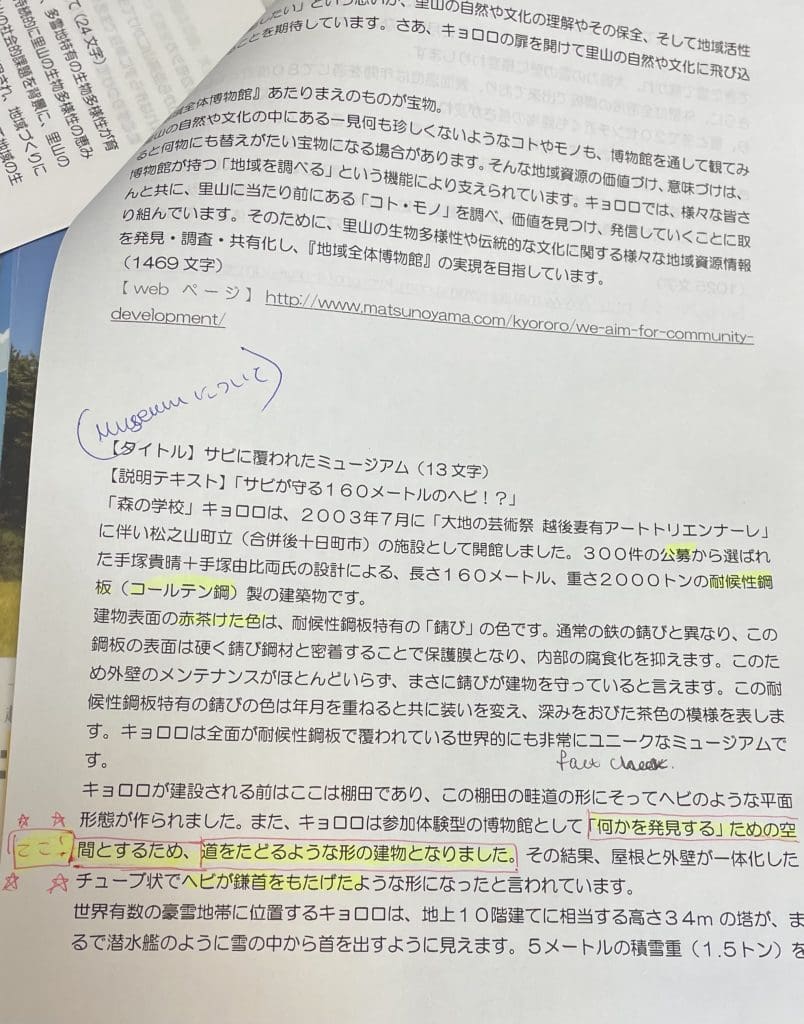 て(24文字)
多雪地特有の生物多様性が育
里山の生物多様性の恵み
社会的課題を背景に、里山の
地域づくりに
したい」という思いが、里山の自然や文化の理解やその保全、そして地域活性
ことを期待しています。さあ、キョロロの扉を開けて里山の自然や文化に飛び込
全体博物館』あたりまえのものが宝物。
山の自然や文化の中にある一見何も珍しくないようなコトやモノも、博物館を通して観てみ
ると何物にも替えがたい宝物になる場合があります。そんな地域資源の価値づけ、意味づけは、
博物館が持つ「地域を調べる」という機能により支えられています。キョロロでは、様々な皆さ
んと共に、里山に当たり前にある「コト・モノ」を調べ、価値を見つけ、発信していくことに取
り組んでいます。そのために、里山の生物多様性や伝統的な文化に関する様々な地域資源情報
を発見・調査・共有化し、『地域全体博物館』の実現を目指しています。
(1469文字)
【web ページ】http://www.matsunoyama.com/kyororo/we-aim-for-community-
development/
(museumについて)
【タイトル】サビに覆われたミュージアム(13文字)
【説明テキスト】「サビが守る160メートルのヘビ!?」
「森の学校」キョロロは、2003年7月に「大地の芸術祭 越後妻有アートトリエンナーレ」
に伴い松之山町立(合併後十日町市)の施設として開館しました。300件の公募から選ばれ
た手塚貴晴+手塚由比両氏の設計による、長さ160メートル、重さ2000トンの耐候性鋼
板(コールテン鋼)製の建築物です。
建物表面の赤茶けた色は、耐候性鋼板特有の「錆び」の色です。通常の鉄の錆びと異なり、この
鋼板の表面は硬く錆び鋼材と密着することで保護膜となり、内部の腐食化を抑えます。このた
め外壁のメンテナンスがほとんどいらず、まさに錆びが建物を守っていると言えます。この耐
候性鋼板特有の錆びの色は年月を重ねると共に装いを変え、深みをおびた茶色の模様を表しま
す。キョロロは全面が耐候性鋼板で覆われている世界的にも非常にユニークなミュージアムで
す。
fact check.
キョロロが建設される前はここは棚田であり、この棚田の畦道の形にそってヘビのような平面
形態が作られました。また、キョロロは参加体験型の博物館として「何かを発見する」ための空
ここ!
間とするため、道をたどるような形の建物となりました。その結果、屋根と外壁が一体化した
チューブ状でヘビが鎌首をもたげたような形になったと言われています。
世界有数の豪雪地帯に位置するキョロロは、地上10階建てに相当する高さ34mの塔が、ま
るで潜水艦のように雪の中から首を出すように見えます。5メートルの積雪重(1.5トン)を